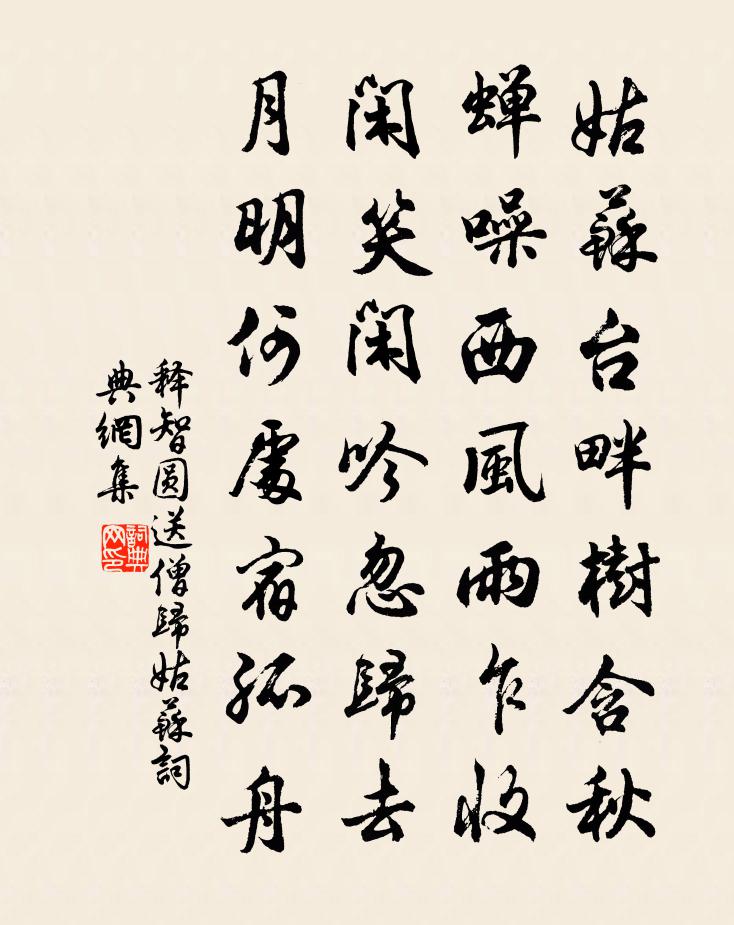 姑蘇台畔樹含秋
蝉噪西風雨乍收
闲笑闲吟忽歸去
月明何處宿孤舟
释智圆送僧歸姑蘇詞
典網集
詞典
网印